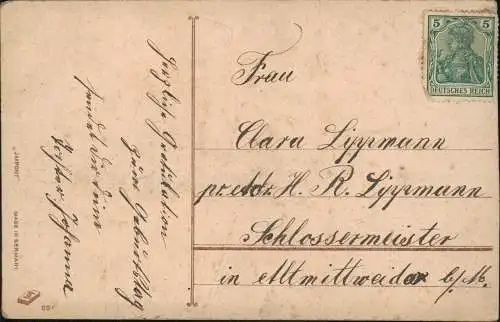 Herzliche Gratulation
zum Geburtstag
sendet Dir Deine
Johanna
Frau
Clara Lippmann
pr. Adr. H. R. Lippmann
Schlossermeister
in Altmittweida b/M.
5 5
DEUTSCHES REICH
MADE IN GERMANY